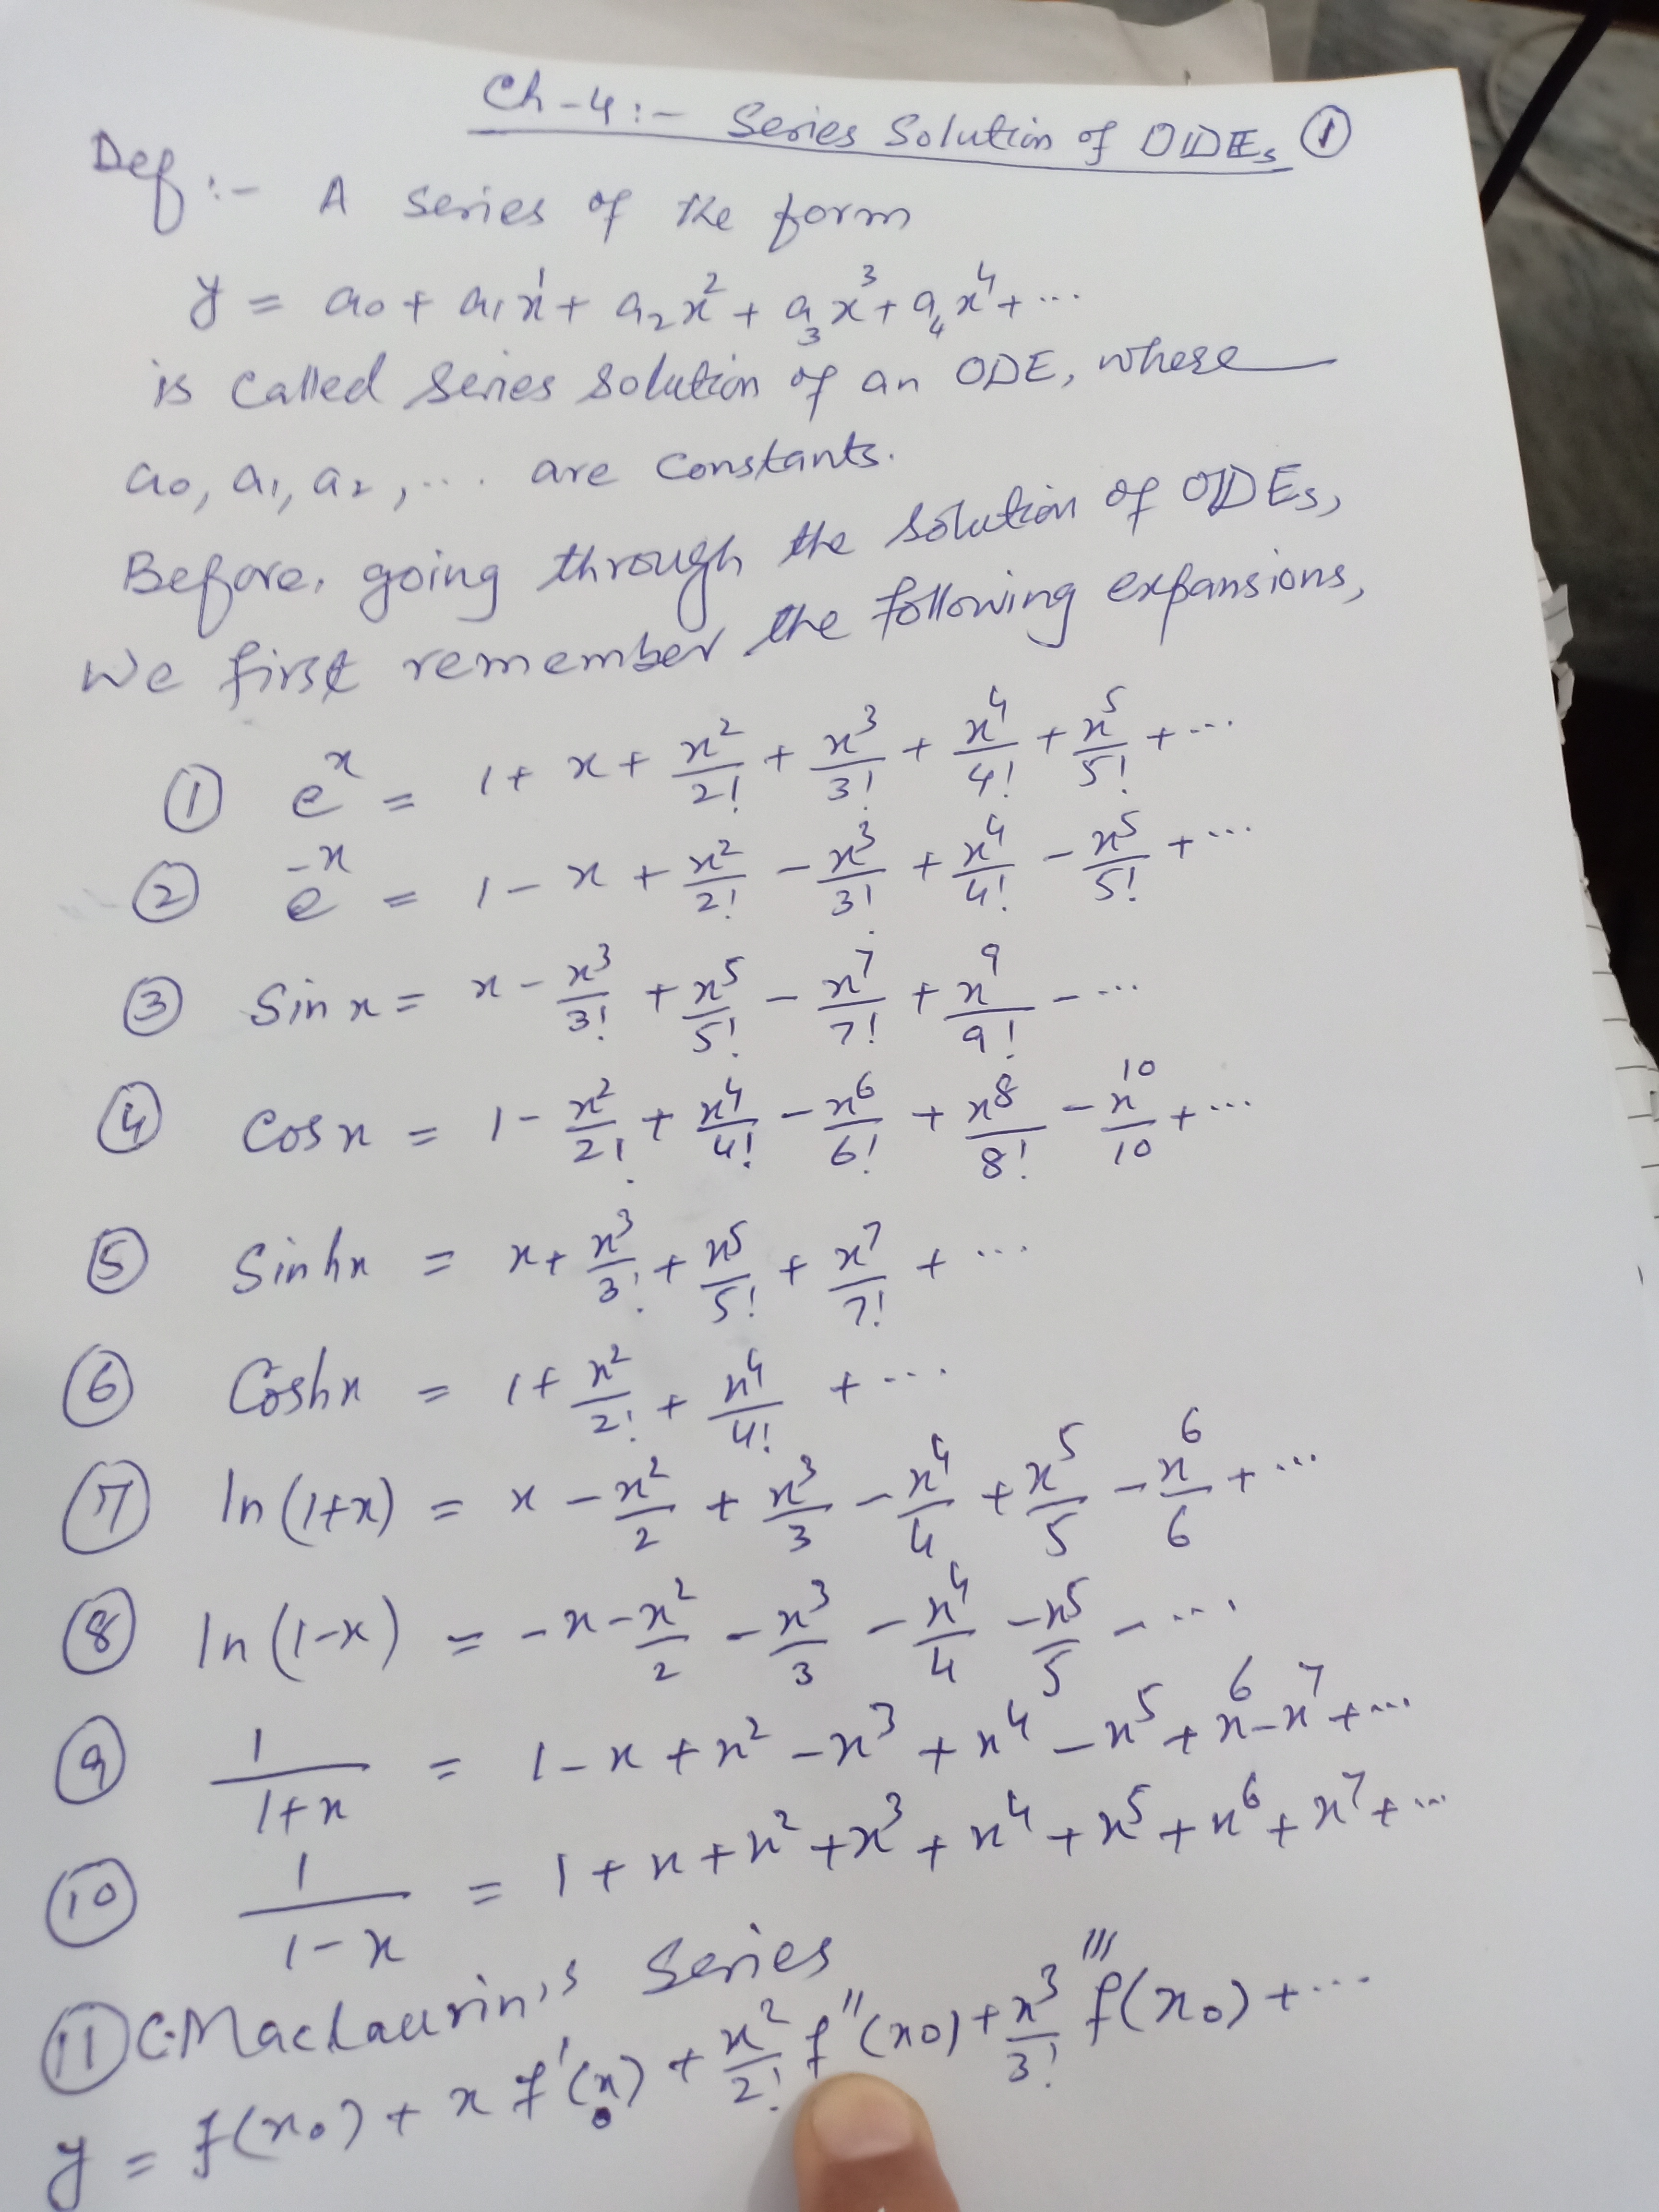 Ch-4:- Series Solution of ODEs ①
Def:- A series of the form
y = a₀ + a₁x¹ + a₂x² + a₃x³ + a₄x⁴ + ...
is called series solution of an ODE, where
a₀, a₁, a₂, ... are constants.
Before, going through the solution of ODEs,
we first remember the following expansions,
① eˣ = 1 + x + x²/2! + x³/3! + x⁴/4! + x⁵/5! + ...
② e⁻ˣ = 1 - x + x²/2! - x³/3! + x⁴/4! - x⁵/5! + ...
③ Sin x = x - x³/3! + x⁵/5! - x⁷/7! + x⁹/9! - ...
④ Cos x = 1 - x²/2! + x⁴/4! - x⁶/6! + x⁸/8! - x¹⁰/10 + ...
⑤ Sinhx = x + x³/3! + x⁵/5! + x⁷/7! + ...
⑥ Coshx = 1 + x²/2! + x⁴/4! + ...
⑦ ln(1+x) = x - x²/2 + x³/3 - x⁴/4 + x⁵/5 - x⁶/6 + ...
⑧ ln(1-x) = -x - x²/2 - x³/3 - x⁴/4 - x⁵/5 - ...
⑨ 1/(1+x) = 1 - x + x² - x³ + x⁴ - x⁵ + x⁶ - x⁷ + ...
⑩ 1/(1-x) = 1 + x + x² + x³ + x⁴ + x⁵ + x⁶ + x⁷ + ...
⑪ C.Maclaurin's Series
y = f(x₀) + x f'(x₀) + x²/2! f''(x₀) + x³/3! f'''(x₀) + ...